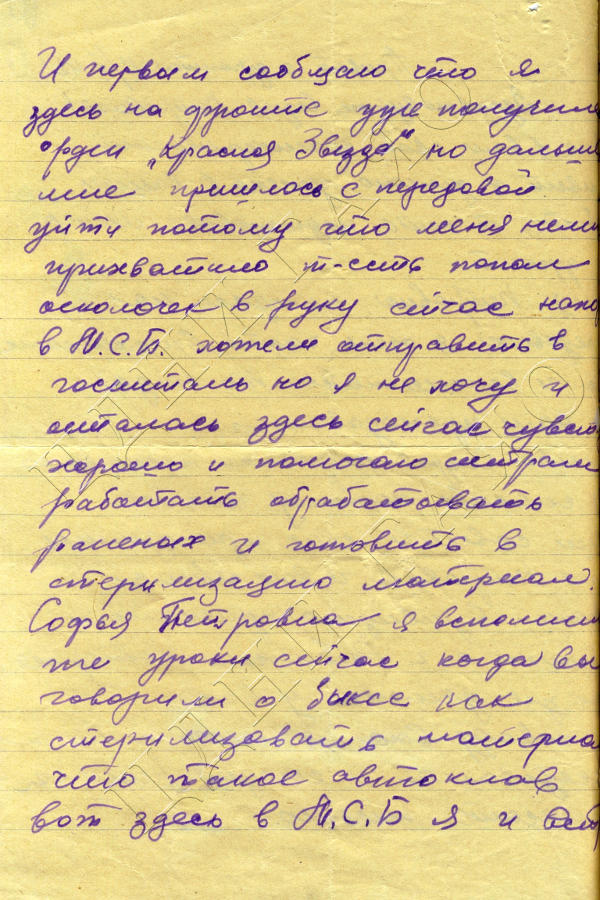 И первым сообщаю что я
здесь на фронте уже получила
орден „Красная Звезда" но дальше
мне пришлось с передовой
уйти потому что меня нем
прихватило т-есть попал
осколочек в руку сейчас нахо
в М.С.Б. хотели отправить в
госпиталь но я не хочу и
осталась здесь сейчас чувств
хорошо и помогаю сестрам
работать обрабатывать
раненых и готовить в
стерилизацию материал.
Софья Петровна я вспомни
же уроки сейчас когда вы
говорили о биксе как
стерилизовать материа
что такое автоклав
вот здесь в М.С.Б я и ост
ЦДНИ ГААО
ЦДНИ ГААО